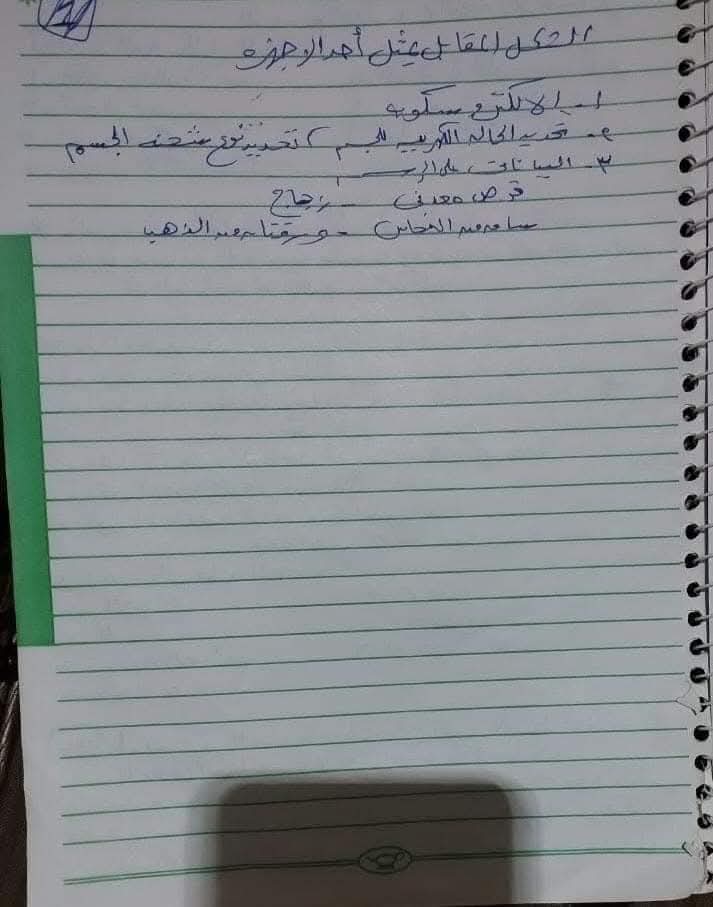 الشكل المقابل يمثل أحد الاجهزه
١- الالكتروسكوب
٢- تحديد الحاله الكهربيه للجسم ، تحديد نوع شحنه الجسم
٣- البيانات على الرسم
قرص معدنى - زجاج
ساق من النحاس - ورقتان من الذهب